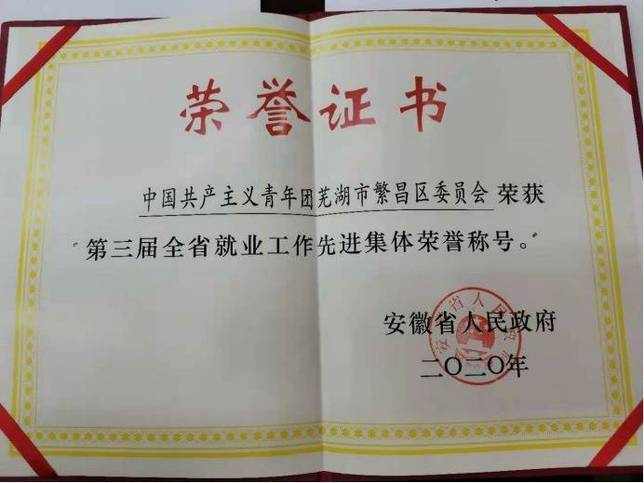 荣誉证书
中国共产主义青年团芜湖市繁昌区委员会 荣获
“第三届全省就业工作先进集体荣誉称号。”
安徽省人民政府
二〇二〇年